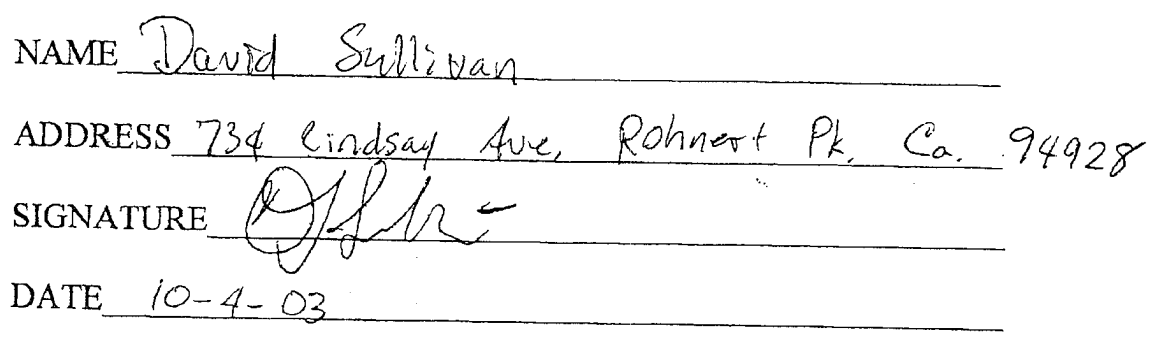 NAME David Sullivan
ADDRESS 734 Lindsay Ave, Rohnert Pk. Ca. 94928
SIGNATURE
DATE 10-4-03